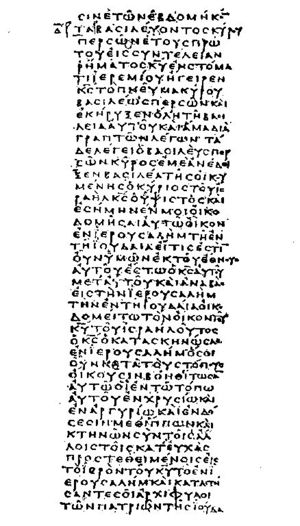 ϹΙΝΕΤΩΝΕΒΔΟΜΗΚΟ̅
ΤΑΒΑϹΙΛΕΥΟΝΤΟϹΚΥΡΟΥ
ΠΕΡϹΩΝΕΤΟΥϹΠΡΩ
ΤΟΥΕΙϹϹΥΝΤΕΛΕΙΑΝ
ΡΗΜΑΤΟϹΚ̅Υ̅ΕΝϹΤΟΜΑ
ΤΙΙΕΡΕΜΙΟΥΗΓΕΙΡΕΝ
Κ̅Ϲ̅ΤΟΠΝΕΥΜΑΚΥΡΟΥ
ΒΑϹΙΛΕΩϹΠΕΡϹΩΝΚΑΙ
ΕΚΗΡΥΞΕΝΟΛΗΤΗΒΑϹΙ
ΛΕΙΑΑΥΤΟΥΚΑΙΑΜΑΔΙΑ
ΓΡΑΠΤΩΝΛΕΓΩΝΤΑ
ΔΕΛΕΓΕΙΟΒΑϹΙΛΕΥϹΠΕΡ
ϹΩΝΚΥΡΟϹΕΜΕΑΝΕΔΕΙ
ΞΕΝΒΑϹΙΛΕΑΤΗϹΟΙΚΟΥ
ΜΕΝΗϹΟΚΥΡΙΟϹΤΟΥΙϹ
ΡΑΗΛΚ̅Ϲ̅ΟΥΨΙϹΤΟϹΚΑΙ
ΕϹΗΜΗΝΕΝΜΟΙΟΙΚΟ
ΔΟΜΗϹΑΙΑΥΤΩΟΙΚΟΝ
ΕΝΙΕΡΟΥϹΑΛΗΜΤΗΕΝ
ΤΗΙΟΥΔΑΙΑΕΙΤΙϹΕϹΤΙ̅
ΟΥΝΥΜΩΝΕΚΤΟΥΕΘΝΟΥϹ
ΑΥΤΟΥΕϹΤΩΟΚ̅Ϲ̅ΑΥΤΟΥ
ΜΕΤΑΥΤΟΥΚΑΙΑΝΑΒΑϹ
ΕΙϹΤΗΝΙΕΡΟΥϹΑΛΗΜ
ΤΗΝΕΝΤΗΙΟΥΔΑΙΑΟΙΚΟ
ΔΟΜΕΙΤΩΤΟΝΟΙΚΟΝΤΟΥ
Κ̅Υ̅ΤΟΥΙϹΡΑΗΛΟΥΤΟϹ
ΟΚ̅Ϲ̅ΟΚΑΤΑϹΚΗΝΩϹΑϹ
ΕΝΙΕΡΟΥϹΑΛΗΜΟϹΟΙ
ΟΥΝΚΑΤΑΤΟΥϹΤΟΠΟΥϹ
ΟΙΚΟΥϹΙΝΒΟΗΘΙΤΩϹΑΝ
ΑΥΤΩΟΙΕΝΤΩΤΟΠΩ
ΑΥΤΟΥΕΝΧΡΥϹΙΩΚΑΙ
ΕΝΑΡΓΥΡΙΩΚΑΙΕΝΔΟ
ϹΕϹΙΝΜΕΘΙΠΠΩΝΚΑΙ
ΚΤΗΝΩΝϹΥΝΤΟΙϹΑΛ
ΛΟΙϹΤΟΙϹΚΑΤΕΥΧΑϹ
ΠΡΟϹΤΕΘΕΙΜΕΝΟΙϹΕΙϹ
ΤΟΙΕΡΟΝΤΟΥΚ̅Υ̅ΤΟΕΝΙ
ΕΡΟΥϹΑΛΗΜΚΑΙΚΑΤΑϹΤΗ
ϹΑΝΤΕϹΟΙΑΡΧΙΦΥΛΟΙ
ΤΩΝΠΑΤΡΙΩΝΤΗϹΙΟΥΔΑ